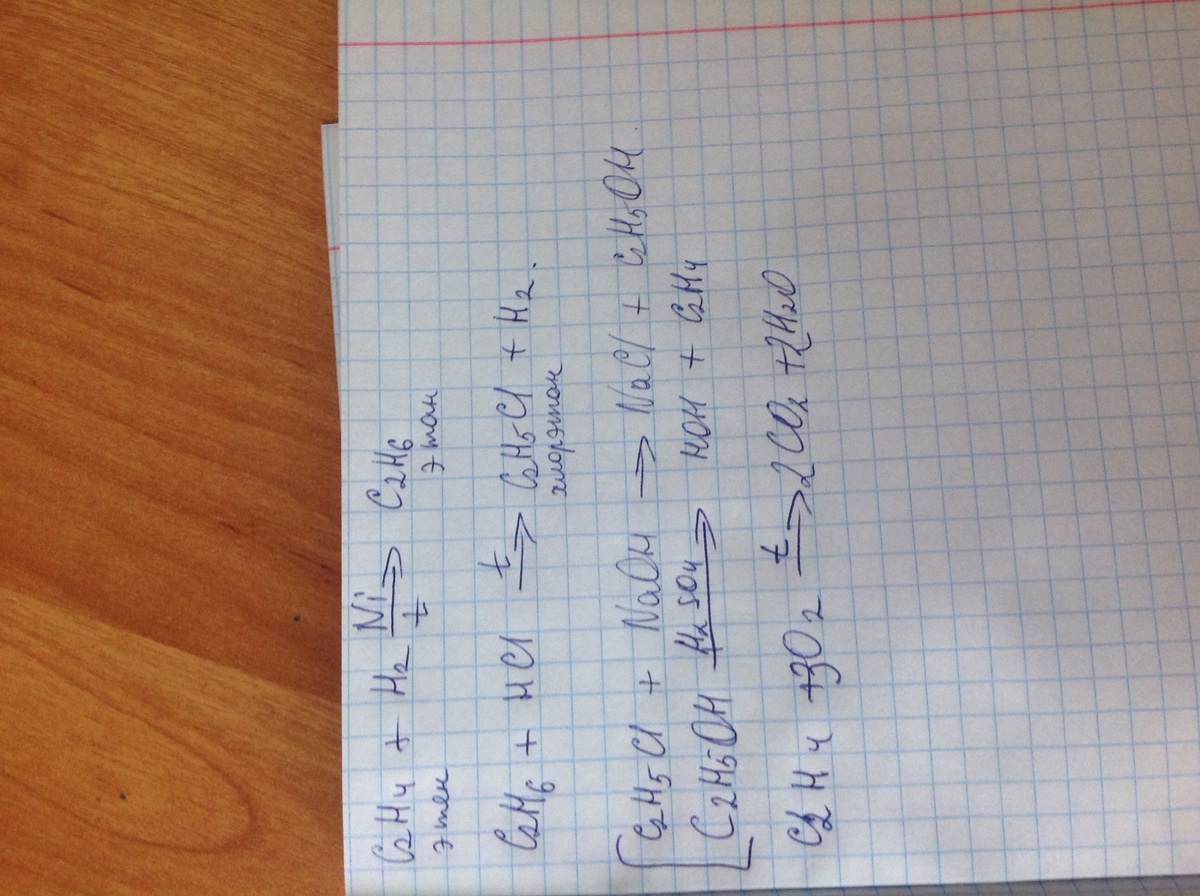 C2H4 + H2 Ni/t ⇒ C2H6
этен этан
C2H6 + HCl t ⇒ C2H5Cl + H2.
хлорэтан
C2H5Cl + NaOH ⇒ NaCl + C2H5OH.
C2H5OH H2SO4 ⇒ HOH + C2H4
C2H4 + 3O2 t ⇒ 2CO2 + 2H2O